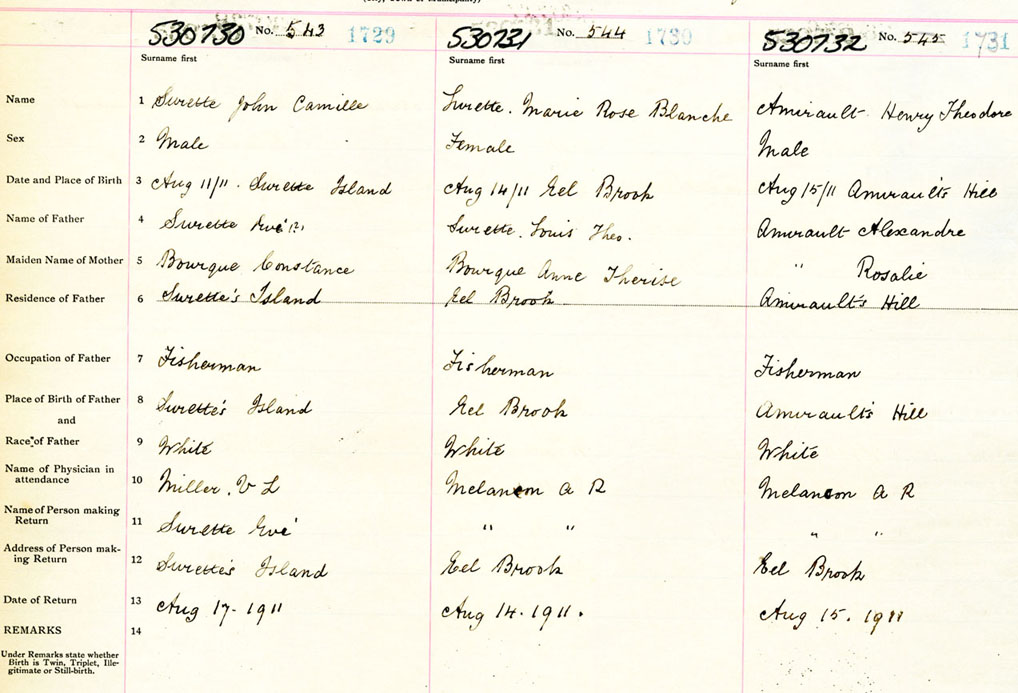 530730 No. 543 1729 530731 No. 544 1730 530732 No. 545 1731
Surname first Surname first Surname first
Name 1 Surette John Camille Surette. Marie Rose Blanche Amirault Henry Theodore
Sex 2 Male Female Male
Date and Place of Birth 3 Aug 11/11. Surette Island Aug 14/11 Eel Brook Aug 15/11 Amirault's Hill
Name of Father 4 Surette Surette. Louis Theo. Amirault Alexandre
Maiden Name of Mother 5 Bourque Constance Bourque Anne Therise " Rosalie
Residence of Father 6 Surette's Island Eel Brook Amirault's Hill
Occupation of Father 7 Fisherman Fisherman Fisherman
Place of Birth of Father 8 Surette's Island Eel Brook Amirault's Hill
and
Race of Father 9 White White White
Name of Physician in
attendance 10 Miller. V L Melancon A R Melancon A R
Name of Person making
Return 11 Surette " " " "
Address of Person mak-
ing Return 12 Surette's Island Eel Brook Eel Brook
Date of Return 13 Aug 17-1911 Aug 14.1911. Aug 15.1911
REMARKS 14
Under Remarks state whether
Birth is Twin, Triplet, Ille-
gitimate or Still-birth.